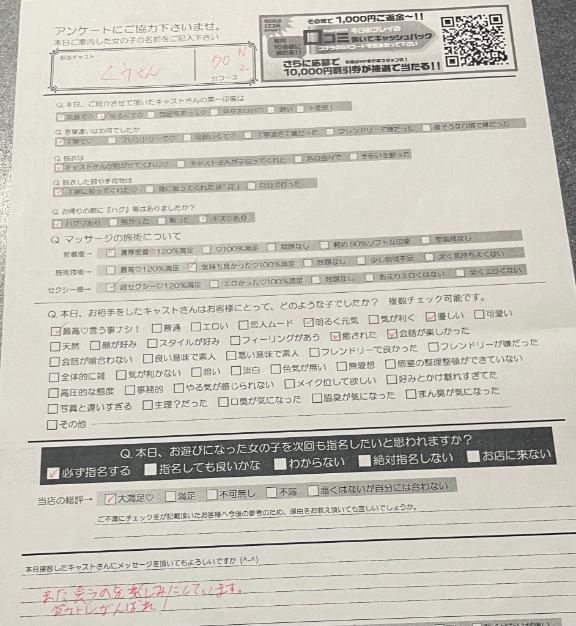 アンケートにご協力下さいませ。
本日ご案内した女の子の名前をご記入下さい
担当キャスト
70 N
2
分コース
その場で1,000円ご返金~!!
今日のプレイの
口コミ 書いてキャッシュバック
コチラのQRコードでお進み下さい
さらに応募で
10,000円割引券が抽選で当たる!!
Q. 本日、ご紹介させて頂いたキャストさんの第一印象は
笑顔で♡ 明るくて♡ 暗い 不愛想!
Q. 言葉遣いは如何でしたか
丁寧で♡ フレンドリーで♡ 可愛いくて♡ 丁寧過ぎて嫌だった フレンドリーで嫌だった 偉そうな口調で嫌だった
Q. 脱衣は
キャストさんが脱がせてくれた♡ キャストさんが手伝ってくれた お互い各々で 手伝いを断った
Q. 脱衣した服や手荷物は
丁寧に扱ってくれた♡ 自分で行った
Q. お帰りの際に『ハグ』等はありましたか?
ハグ♡あり 無かった 断った キス♡あり
Q. マッサージの施術について
密着度→ 濃厚密着♡120%満足 ♡100%満足 問題なし 軽め50%ソフトな印象 密着感なし
施術技術→ 最高♡120%満足 気持ち良かった♡100%満足 問題なし 少し勉強不足 全く気持ちよくない
セクシー感→ 超セクシー♡120%満足 エロかった♡100%満足 問題なし あまりエロくはない 全くエロくない
Q. 本日、お相手をしたキャストさんはお客様にとって、どのような子でしたか? 複数チェック可能です。
最高♡言う事ナシ! 普通 エロい 恋人ムード 明るく元気 気が利く 優しい 可愛い
天然 顔が好み スタイルが好み フィーリングがあう 癒された 会話が楽しかった
会話が噛合わない 良い意味で素人 悪い意味で素人 フレンドリーで良かった フレンドリーが嫌だった
全体的に雑 気が利かない 暗い 淡白 色気が無い 無愛想 個室の整理整頓ができていない
高圧的な態度 事務的 やる気が感じられない メイク位して欲しい 好みとかけ離れすぎてた
写真と違いすぎる 生理?だった 口臭が気になった 脇臭が気になった まん臭が気になった
その他
Q. 本日、お遊びになった女の子を次回も指名したいと思われますか?
必ず指名する 指名しても良いかな わからない 絶対指名しない お店に来ない
当店の総評→ 大満足♡ 満足 不可無し 不満 悪くはないが自分には合わない
ご不満にチェックをが記載頂いたお客様へ今後の参考のため、理由をお教え頂いても宜しいでしょうか。
本日接客したキャストさんにメッセージを頂いてもよろしいですか (^-^)
また会うのを楽しみにしています。
筋トレがんばれ!